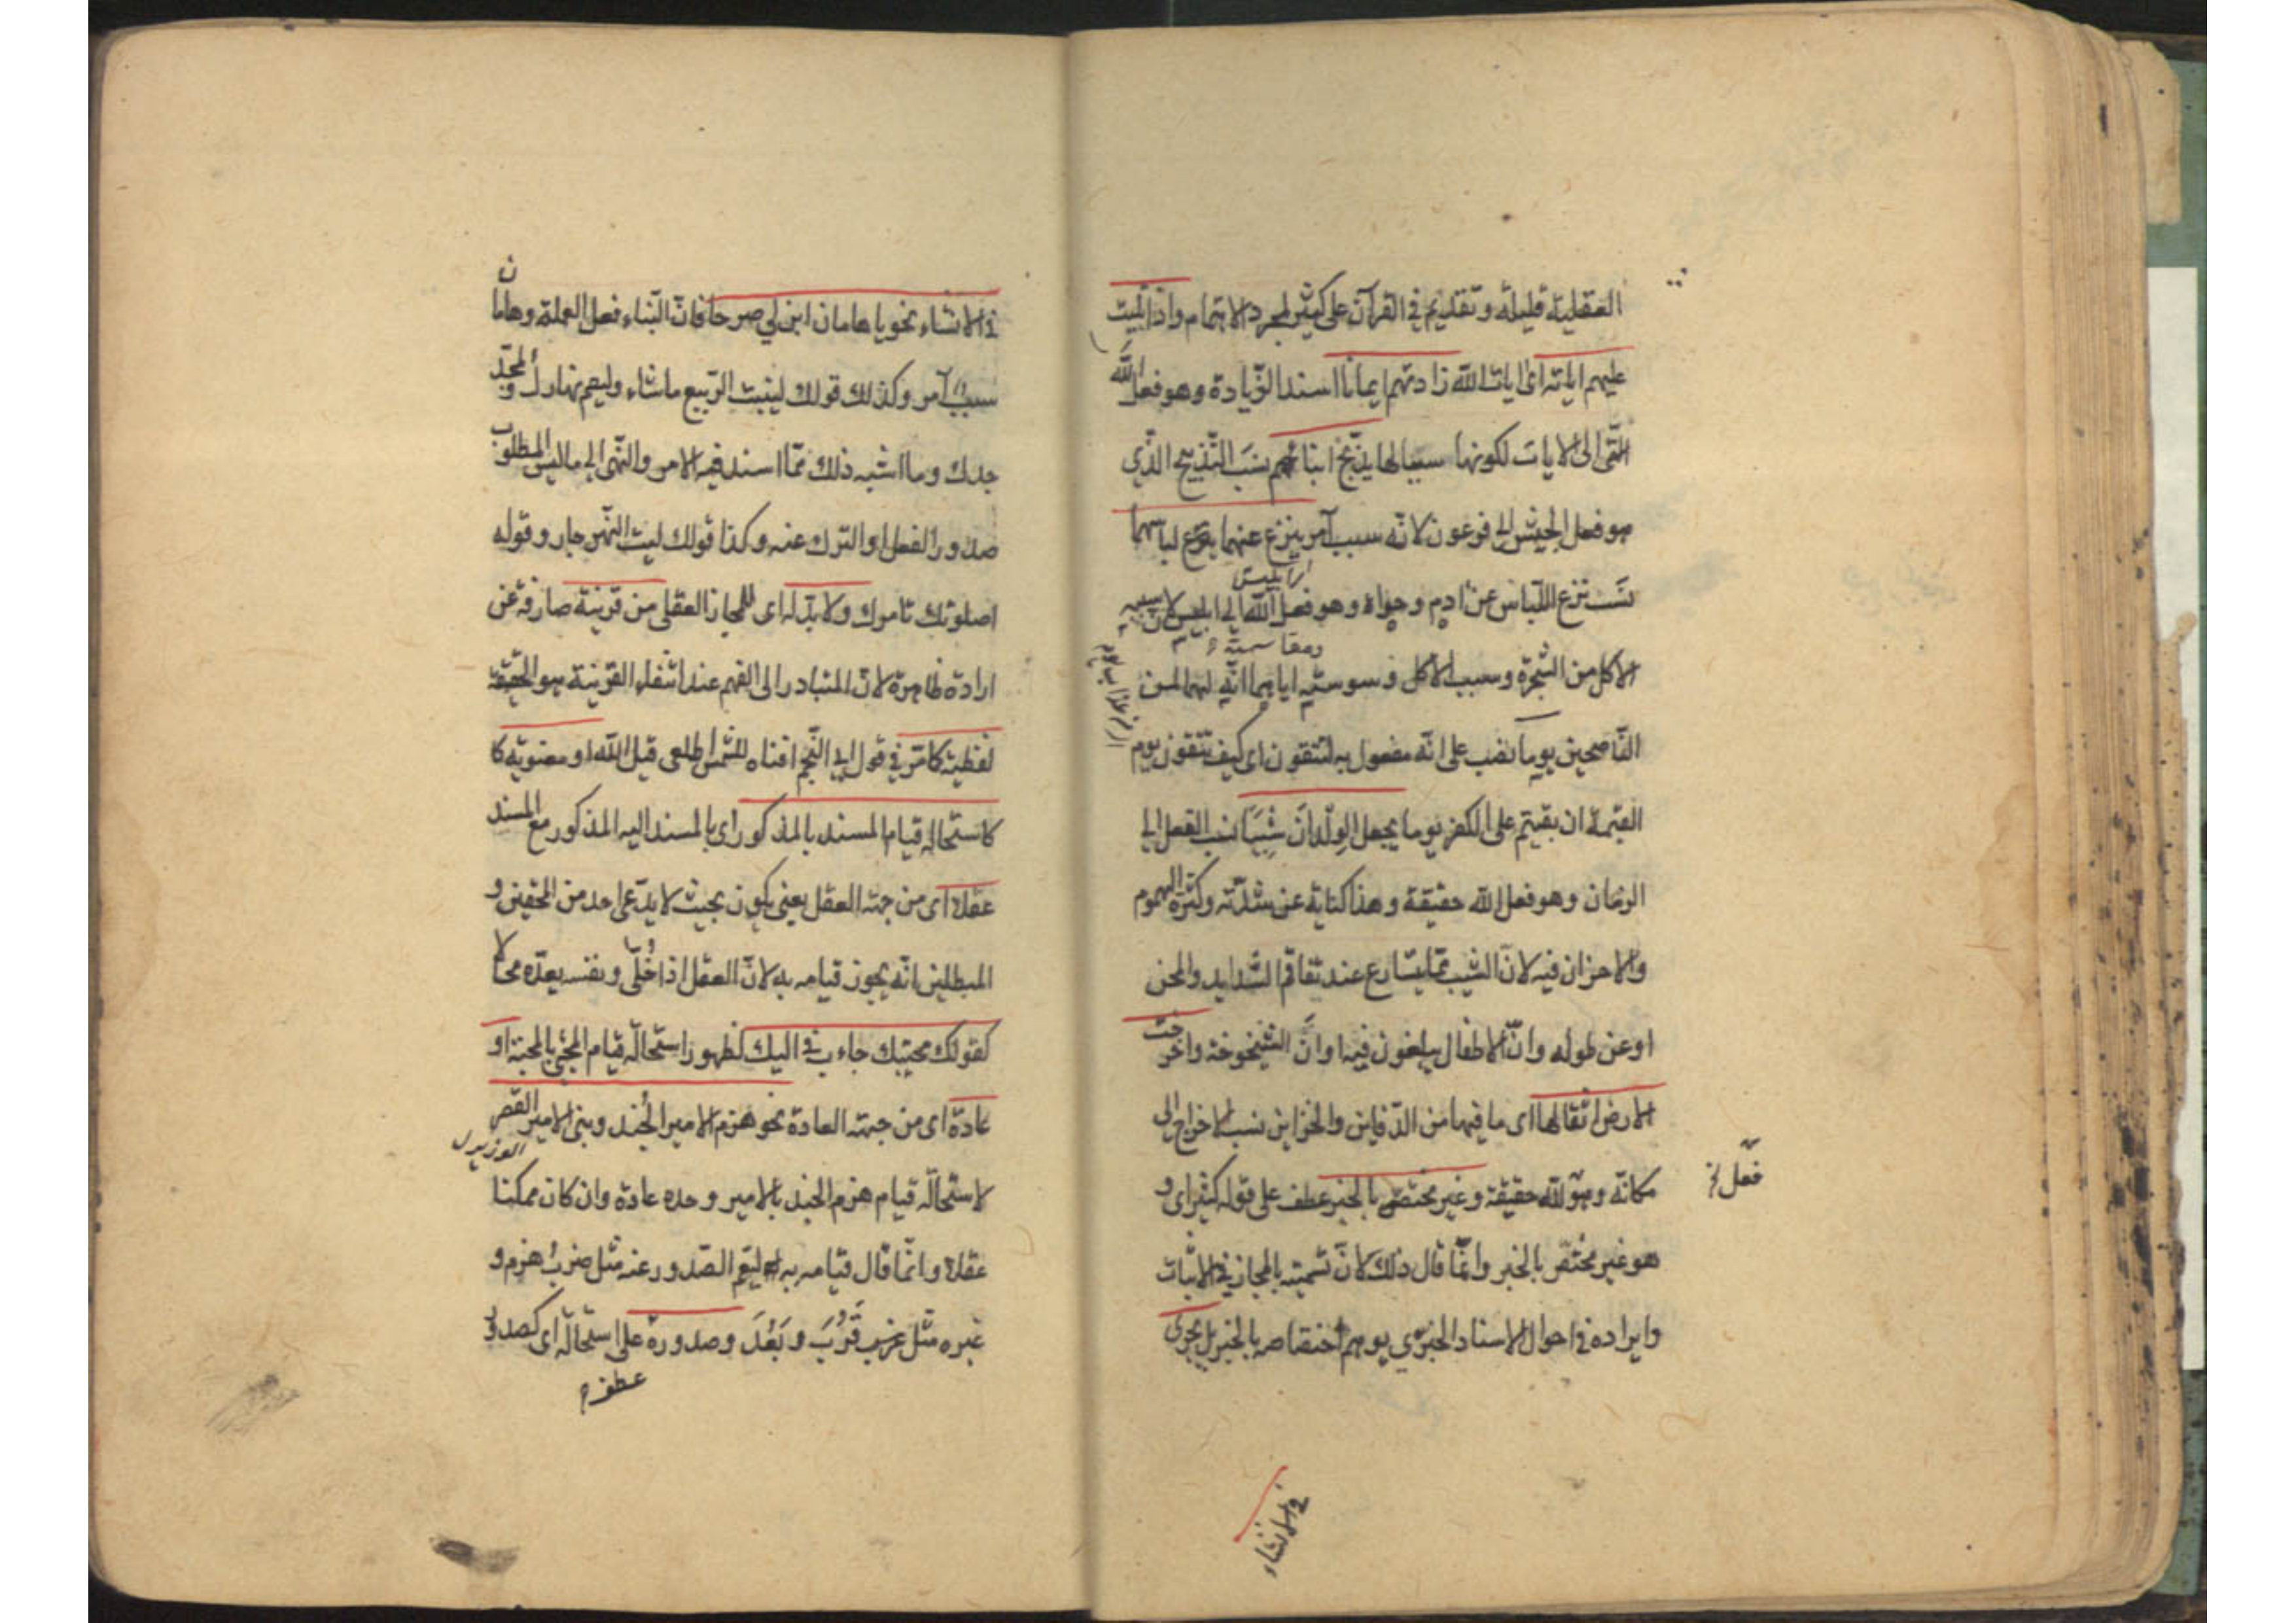 العقلية قليلة وتقديم في القرآن على كثير لمجرد الاهتمام واذا تليت
عليهم اياته اى ايات الله زادتهم ايمانا اسند الزيادة وهو فعل الله
الى الايات لكونها سببا لها يذبح ابنائهم نسب التذبيح الذي
هو فعل الجيش الى فرعون لانه سبب آمر ينزع عنهما لباسهما
نسب نزع اللباس عن ادم وحواء وهو فعل الله الى ابليس لان سببه
ابليس
الاكل من الشجرة وسبب الاكل وسوسته ومقاسمته اياهما انه لهما لمن
الناصحين يوما نصب على انه مفعول به لتتقون اى كيف تتقون يوم
القيمة ان بقيتم على الكفر يوما يجعل الولدان شيبا نسب الفعل الى
الزمان وهو فعل الله حقيقة وهذا كناية عن شدته وكثرة الهموم
والاحزان فيه لان الشيب مما يتسارع عند تفاقم الشدايد والمحن
او عن طوله وان الاطفال يبلغون فيه اوان الشيخوخة واخرجت
الارض اثقالها اى ما فيها من الدفاين والخزاين نسب الاخراج الى
مكانه وهو لله حقيقة وغير مختص بالخبر عطف على قوله كثير اى و
فعل
هو غير مختص بالخبر وانما قال ذلك لان تسميته بالمجاز في الاثبات
وايراده في احوال الاسناد الخبري يوهم اختصاصه بالخبر بل يجرى
في الانشاء
في الانشاء نحو يا هامان ابن لي صرحا فان البناء فعل العملة وهامان
سبب آمر وكذلك قولك لينبت الربيع ما شاء وليصم نهارك وليجد
جدك وما اشبه ذلك مما اسند فيه الامر والنهى الى ما ليس المطلوب
صدور الفعل او الترك عنه وكذا قولك ليت النهر جار وقوله
اصلوتك تامرك ولا بد له اى للمجاز العقلى من قرينة صارفة عن
ارادة ظاهره لان المتبادر الى الفهم عند انتفاء القرينة هو الحقيقة
لفظية كما مر في قول ابي النجم افناه للشمس اطلعى قيل الله او معنوية كا
كاستحالة قيام المسند بالمذكور اى بالمسند اليه المذكور مع المسند
عقلا اى من جهة العقل يعنى يكون بحيث لا يدعى احد من المحقين و
المبطلين انه يجوز قيامه به لان العقل اذا خلى ونفسه يعده محالا
كقولك محبتك جاءت بى اليك لظهور استحالة قيام المجئ بالمحبة او
عادة اى من جهة العادة نحو هزم الامير الجند وبنى الامير القصر
الوزير
لاستحالة قيام هزم الجند بالامير وحده عادة وان كان ممكنا
عقلا وانما قال قيامه به ليعم الصدور عنه مثل ضرب وهزم و
غيره مثل قرب وبعد وصدوره على استحالة اى كصدور
عطف